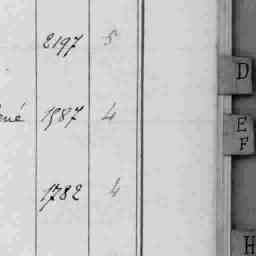 2197 5
ené 1587 4
1782 4
D
E
F
H